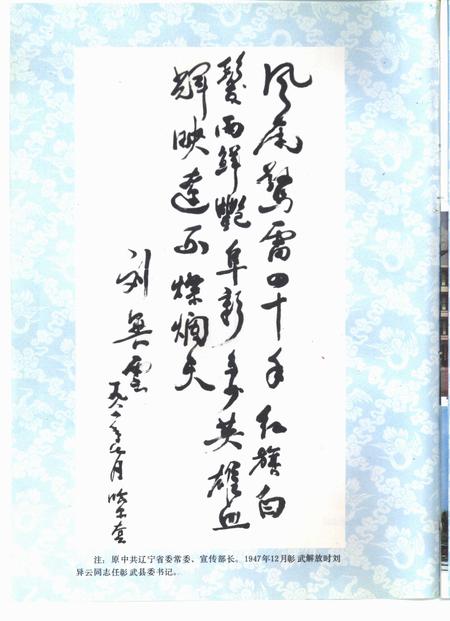 风雨驚雷四十年红旗白
鬓两鲜艷阜新多少英雄血
辉映遼西燦爛天
刘異雲
哈尔套
注：原中共辽宁省委常委、宣传部长。1947年12月彰武解放时刘
异云同志任彰武县委书记。